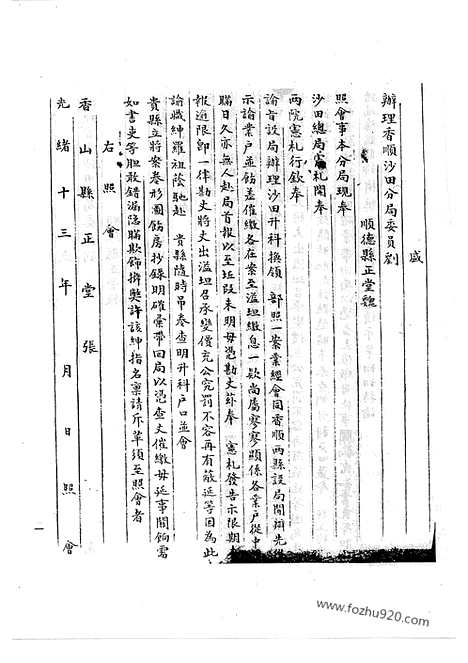 盛
辦理香順沙田分局委員劉
順德縣正堂魏
照會事本分局現奉
沙田總局憲札開奉
兩院憲札行欽奉
諭旨設局辦理沙田升科換領 部照一案業經會同香順兩縣設局開辦先
示諭業戶並飭差催繳各在案至溢坦繳息一欵尚屬寥寥顯係各業戶從中
瞞日久亦無人赴局首報以至坵段未明毋憑勘丈茲奉 憲札發告示限期
報逾限即一律勘丈將丈出溢坦召承變價充公究罰不容再有蔽延等因為此
諭職紳羅祖蔭馳赴 貴縣隨時吊卷查明升科戶口並會
貴縣立將案卷形圖飭房抄錄明確彙帶回局以憑查丈催繳毋延事關餉需
如書吏等胆敢錯漏隱瞞欺飾擠弊許該紳指名稟請斥革須至照會者
右照會
香山縣正堂張
光緒十三年 月 日照會
一
www.fozhu920.com